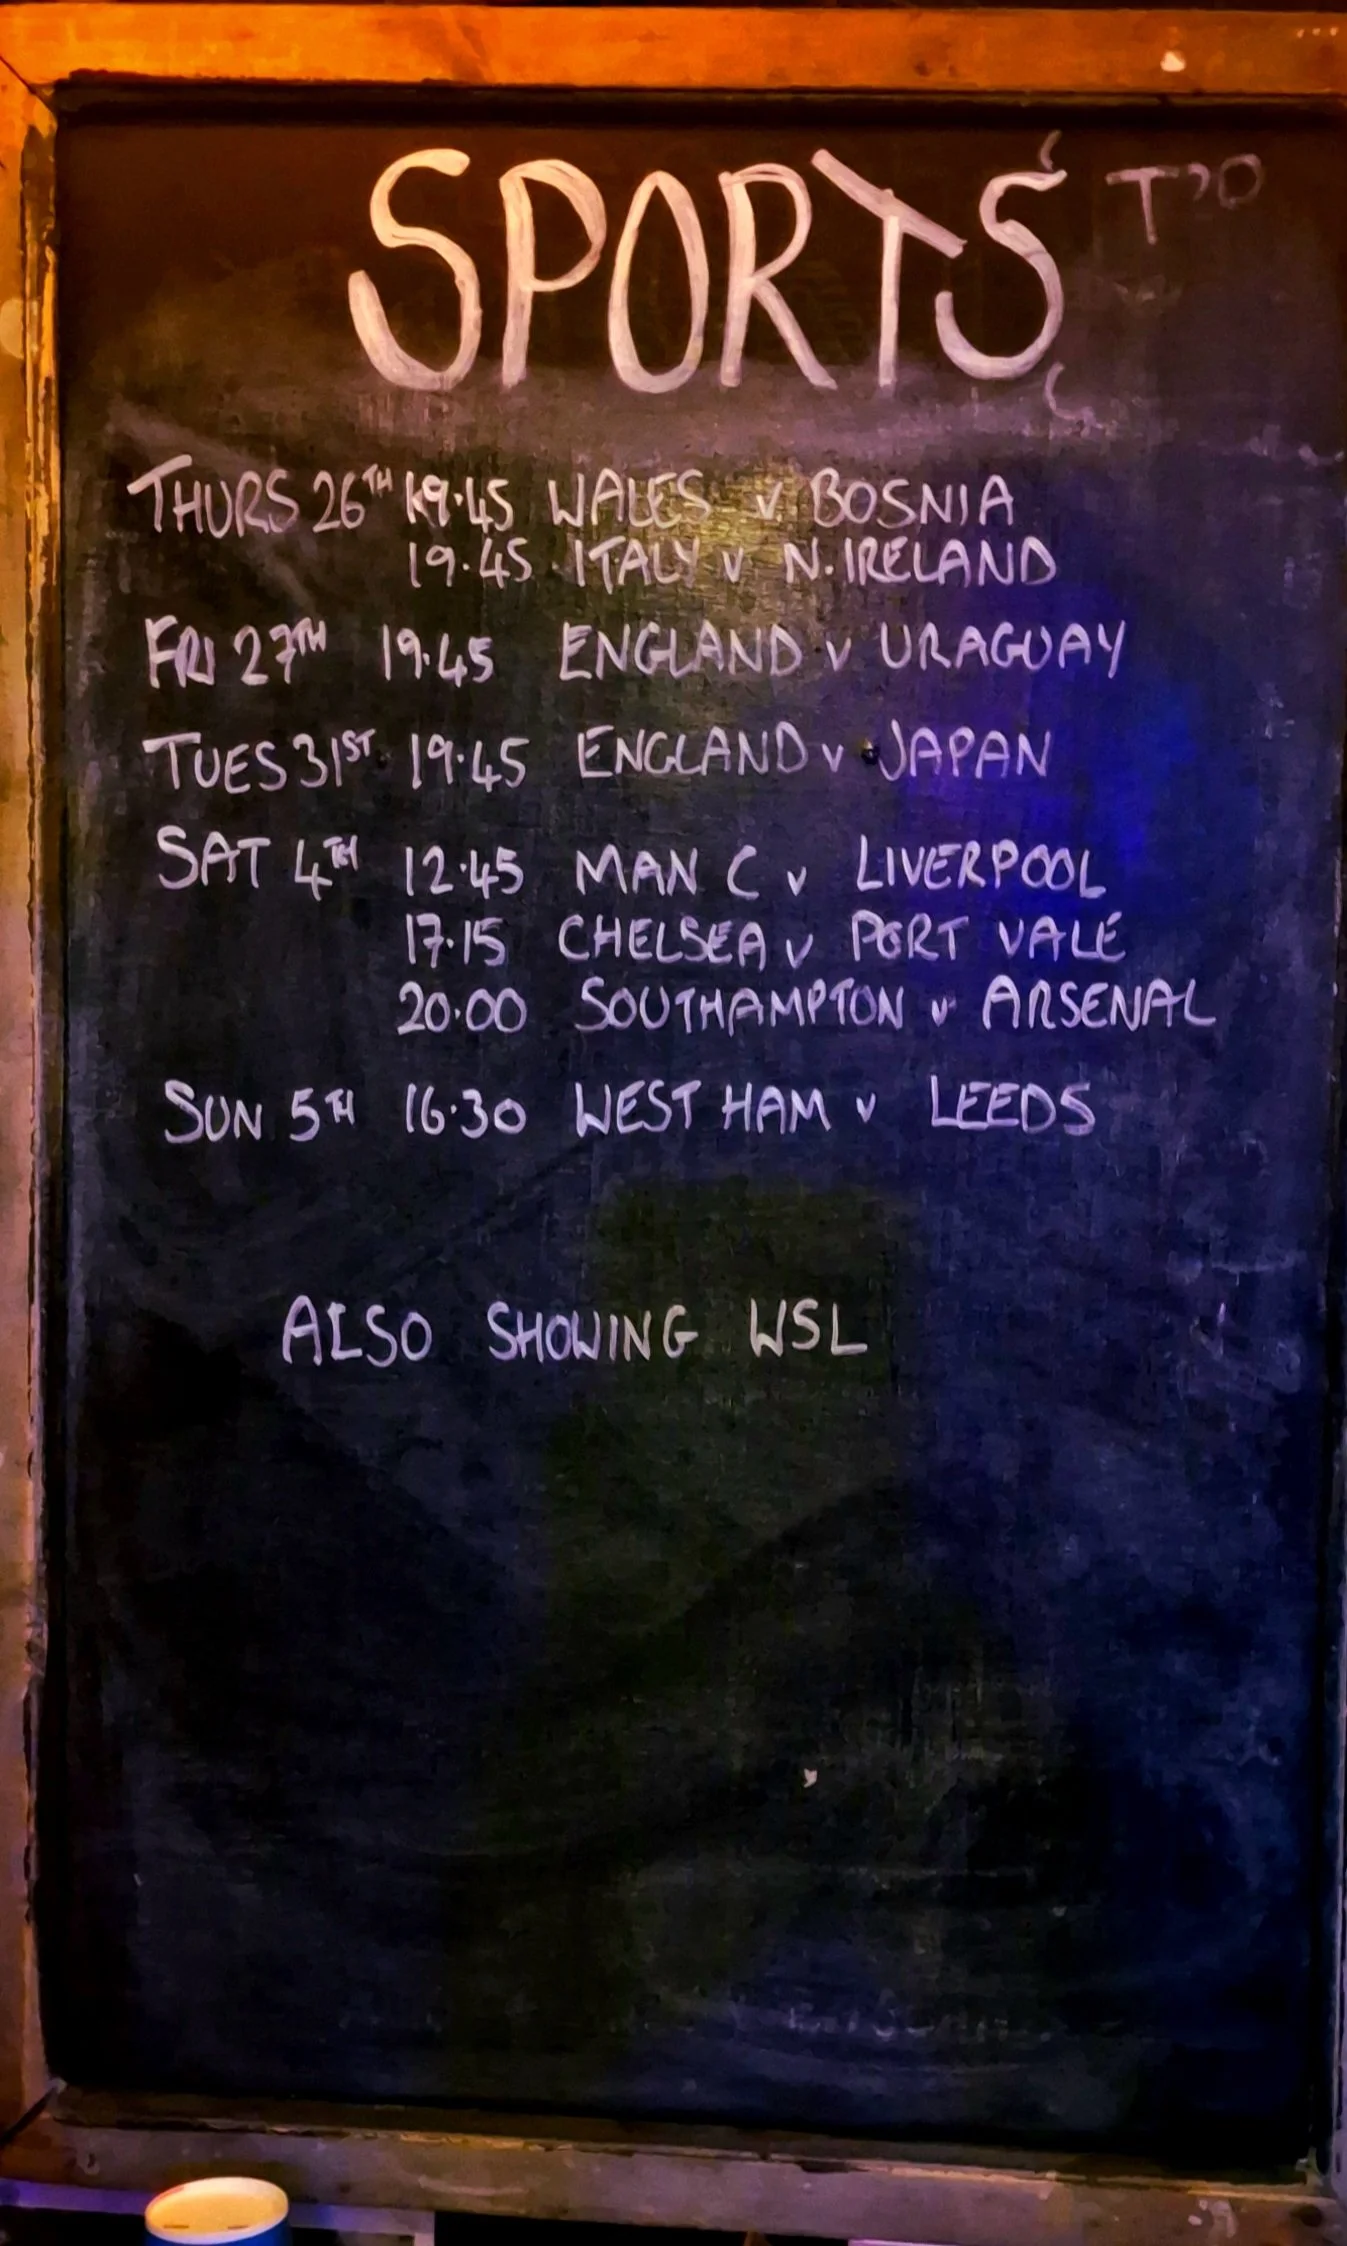 SPORTS
THURS 26TH 19.45 WALES v BOSNIA
19.45 ITALY v N. IRELAND
FRI 27TH 19.45 ENGLAND v URAGUAY
TUES 31ST 19.45 ENGLAND v JAPAN
SAT 4TH 12.45 MAN C v LIVERPOOL
17.15 CHELSEA v PORT VALE
20.00 SOUTHAMPTON v ARSENAL
SUN 5TH 16.30 WEST HAM v LEEDS
ALSO SHOWING WSL